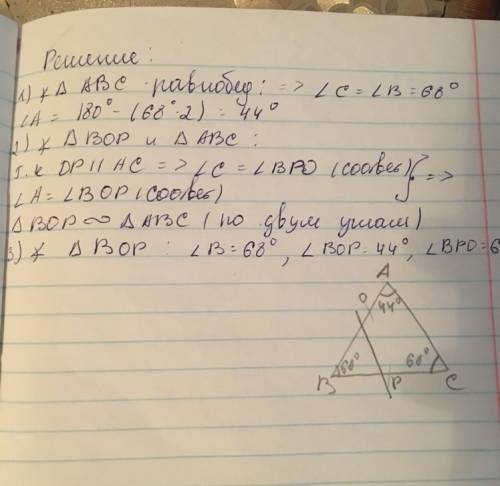 Решение:
1) ∡ Δ ABC - равнобед: => ∠C = ∠B = 68°
∠A = 180° - (68°·2) = 44°
2) ∡ Δ BOP и Δ ABC:
т.к OP || AC => ∠C = ∠BPO (соотвес) } =>
∠A = ∠BOP (соотвес)
Δ BOP ∞ Δ ABC (по двум углам)
3) ∡ Δ BOP : ∠B = 68°, ∠BOP = 44°, ∠BPO = 6
A
O
44°
68°
68°
B
P
C